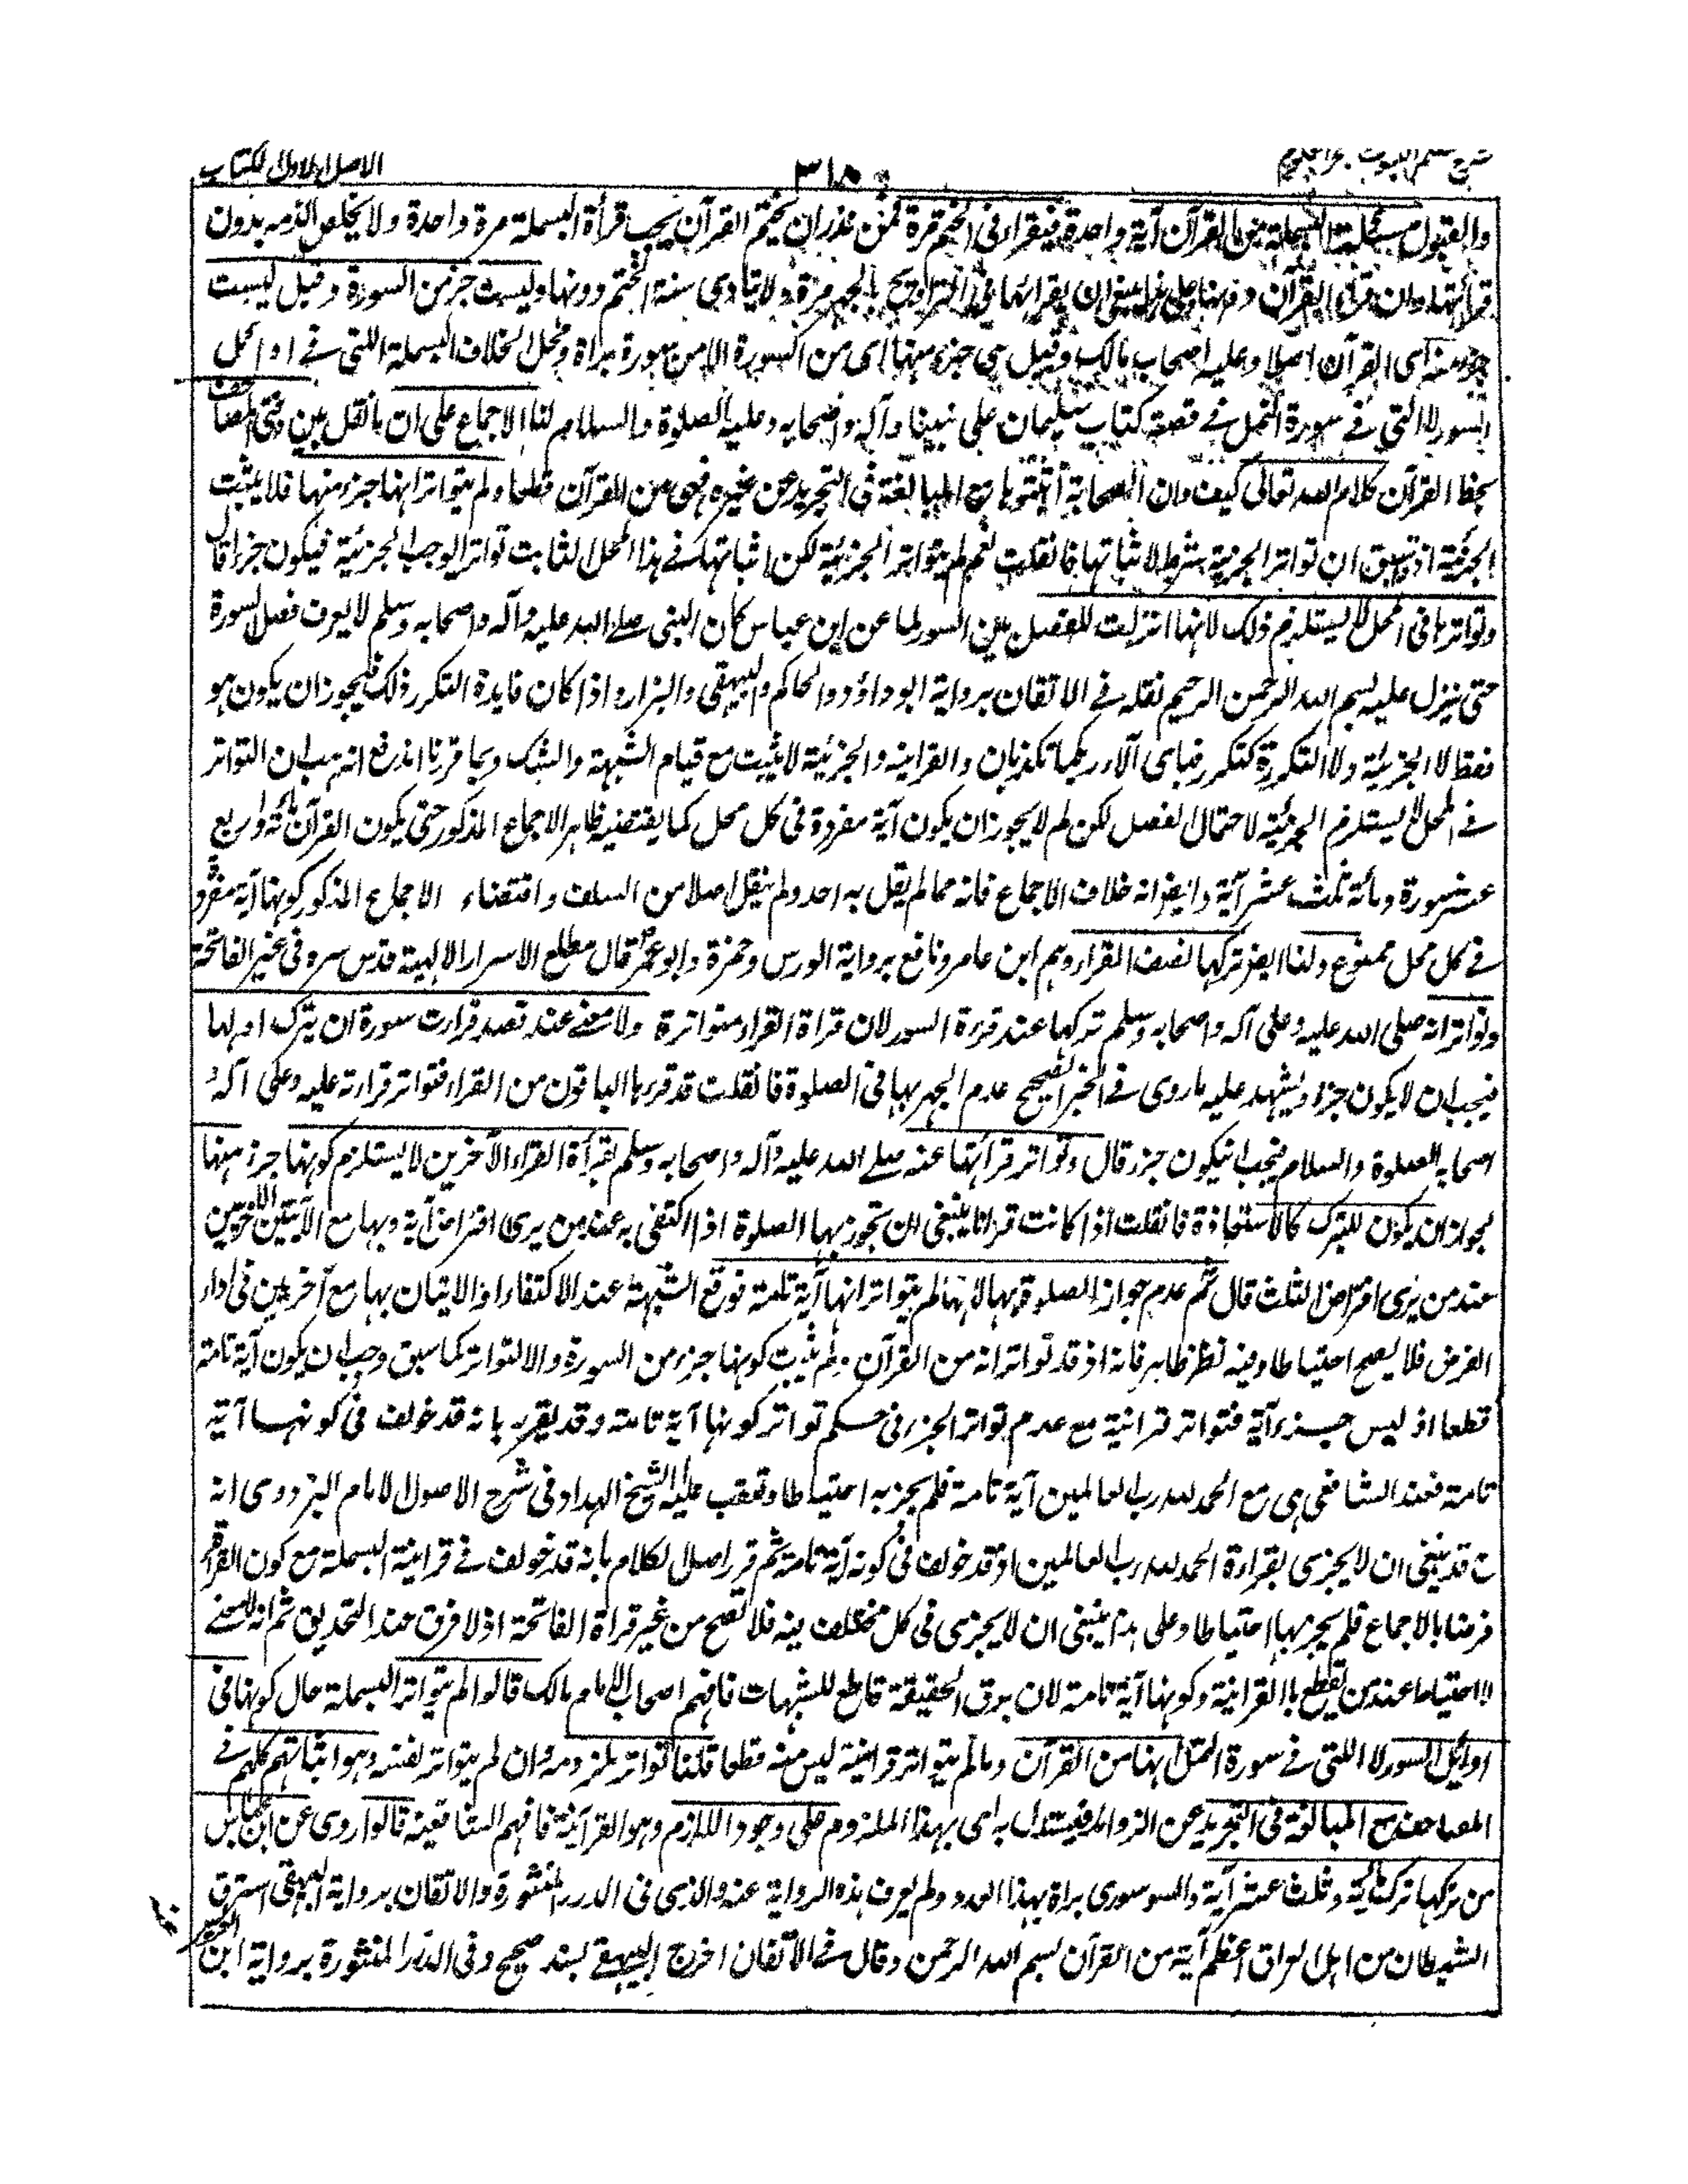 شرح مسلم الثبوت بحر العلوم
٣١٨
الاصل الاول الكتاب
والقبول مسئلة البسملة من القرآن آية واحدة فيقرأ في الختم مرة فمن نذر ان يختم القرآن يجب قرأة البسملة مرة واحدة ولا يخلص الذمه بدون
قرائتها وان قراء القرآن دونها وعلى هذا ينبغي ان يقرائها في التراويح بالجهر مرة ولا يتادى سنة الختم دونها وليست جزء من السورة وقيل ليست
جزء منه اى القرآن اصلا وعليه اصحاب مالك وقيل هي جزء منها اى من السورة الا من سورة براة ومحل الخلاف البسملة اللتى في اوائل
السور لا التي في سورة النمل في قصة كتاب سليمان على نبينا وآله واصحابه وعليه الصلوة والسلام لنا الاجماع على ان ما نقل بين دفتى المصاحف
بخط القرآن كلام الله تعالى كيف وان الصحابة اثبتوها مع المبالغة في التجريد عن غيره فهى من القرآن قطعا ولم يتواتر انها جزء منها فلا يثبت
الجزئية اذ قد سبق ان تواتر الجزئية شرط لاثباتها فان قلت نعم لم يتواتر الجزئية لكن اثباتها في هذا المحل الثابت تواترا يوجب الجزئية فيكون جزا قال
وتواترها في المحل لا يستلزم ذلك لانها انزلت للفصل بين السور لما عن ابن عباس كان النبى صلى الله عليه وآله واصحابه وسلم لا يعرف فصل السورة
حتى ينزل عليه بسم الله الرحمن الرحيم نقله في الاتقان برواية ابو داؤد والحاكم والبيهقي والبزار واذا كان فايدة التكرر ذلك فيجوز ان يكون هو
فقط لا الجزئية ولا التكررة كتكرر فباى آلاء ربكما تكذبان والقرانيه والجزئية لا يثبت مع قيام الشبهة والشك وبما قررنا اندفع انه هب ان التواتر
في المحل لا يستلزم الجزئية لاحتمال الفصل لكن لم لا يجوز ان يكون آية مفردة في كل محل كما يقتضيه ظاهر الاجماع المذكور حتى يكون القرآن مائة واربع
عشر سورة ومائة ثلث عشر آية وايضا انه خلاف الاجماع فانه مما لم يقل به احد ولم ينقل اصلا من السلف واقتضاء الاجماع المذكور كونها آية مفردة
في كل محل ممنوع ولنا ايضا تركها نصف القراء وهم ابن عامر ونافع برواية الورش وحمزة وابو عمرو قال مطلع الاسرار الالهية قدس سره في غير الفاتحة
وتواتر انه صلى الله عليه وعلى آله واصحابه وسلم تركها عند قراة السور لان قراة القراء متواترة ولا معنى عند قصد قرارت سورة ان يترك اولها
فيجب ان لا يكون جزء ويشهد عليه ما روى في الخبر الصحيح عدم الجهر بها في الصلوة فان قلت قد قرء ها الباقون من القراء فتواتر قرارته عليه وعلى آله
اصحابه الصلوة والسلام فيجب ان يكون جزء قال وتواتر قرأتها عنه صلى الله عليه وآله واصحابه وسلم بقرأة القراء الآخرين لا يستلزم كونها جزء منها
لجواز ان يكون للتبرك كالاستعاذة فان قلت اذا كانت قرانا ينبغي ان تجوز بها الصلوة اذا اكتفى به عند من يرى افتراض آية وبها مع الآيتين الاخريين
عند من يرى افتراض الثلث قال ثم عدم جواز الصلوة بها لانها لم يتواتر انها آية تامة فوقع الشبهة عند الاكتفاء او الاتيان بها مع آخريين في اداء
الفرض فلا يصح احتياطا وفيه نظر ظاهر فانه اذ قد تواتر انه من القرآن ولم يثبت كونها جزء من السورة والا لتواتر كما سبق وجب ان يكون آية تامة
قطعا اذ ليس جزء آية فتواتر قرانية مع عدم تواتر الجزء في حكم تواتر كونها آية تامة وقد يقرر بانه قد خولف في كونها آية
تامة فعند الشافعي هى مع الحمد لله رب العالمين آية تامة فلم يجز به احتياطا وتعقب عليه الشيخ الهداد في شرح الاصول لامام البزدوى انه
ح قد ينبغي ان لا يجزى بقراءة الحمد لله رب العالمين اذ قد خولف في كونه آية تامة ثم قرر اصل الكلام بانه قد خولف في قرانية البسملة مع كون القراة
فرضا بالاجماع فلم يجز بها احتياطا وعلى هذا ينبغي ان لا يجزى في كل مختلف فيه فلا تصح من غير قراة الفاتحة اذ لا فرق عند التحديق ثم انه لا معنى
لاحتياط عند من يقطع بالقرانية وكونها آية تامة لان برق الحقيقة قاطع للشبهات فافهم اصحاب الامام مالك قالوا لم يتواتر البسملة حال كونها في
اوائل السور لا اللتى في سورة النمل بها من القرآن وما لم يتواتر قرانية ليس منه قطعا قلنا تواتر بلزومه وان لم يتواتر لفسه وهو اثباتهم كلهم في
المصاحف مع المبالغة في التجريد عن الزوائد فيستدل به اى بهذا الملزوم على وجود اللازم وهو القرآنية فافهم الشافعية قالوا روى عن ابن عباس
من تركها ترك مائة وثلث عشر آية والسور سوى براة بهذا العدد ولم يعرف هذه الرواية عنه والذى في الدرر المنثورة والاتقان برواية البيهقي استرق
الشيطان من اهل العراق اعظم آية من القرآن بسم الله الرحمن وقال في الاتقان اخرج البيهقي بسند صحيح وفى الدرر المنثورة برواية ابن